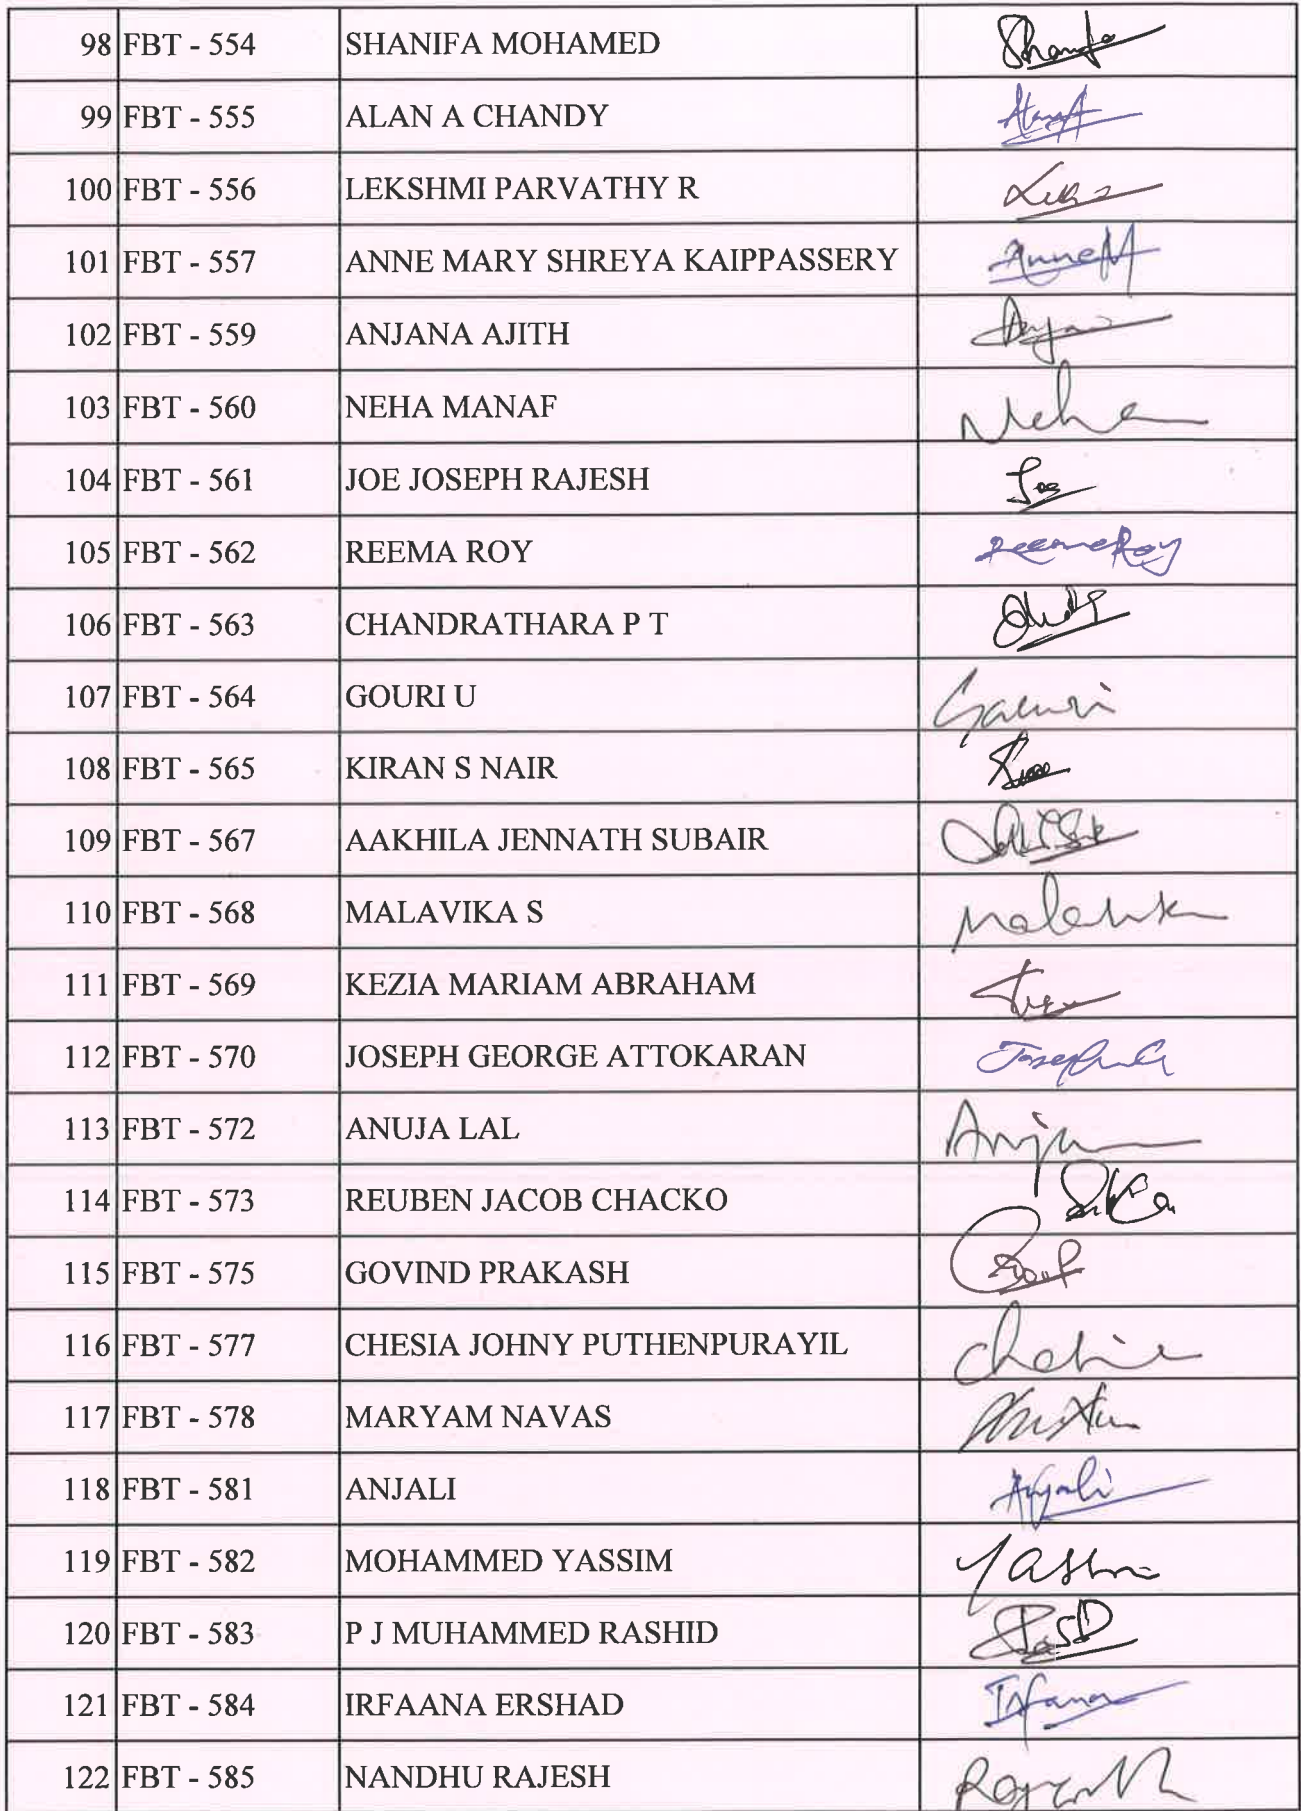 98 FBT - 554 SHANIFA MOHAMED Shanifa
99 FBT - 555 ALAN A CHANDY
100 FBT - 556 LEKSHMI PARVATHY R
101 FBT - 557 ANNE MARY SHREYA KAIPPASSERY AnneM
102 FBT - 559 ANJANA AJITH
103 FBT - 560 NEHA MANAF Neha
104 FBT - 561 JOE JOSEPH RAJESH Joe
105 FBT - 562 REEMA ROY ReemaRoy
106 FBT - 563 CHANDRATHARA P T
107 FBT - 564 GOURI U Gouri
108 FBT - 565 KIRAN S NAIR
109 FBT - 567 AAKHILA JENNATH SUBAIR
110 FBT - 568 MALAVIKA S Malavika
111 FBT - 569 KEZIA MARIAM ABRAHAM
112 FBT - 570 JOSEPH GEORGE ATTOKARAN
113 FBT - 572 ANUJA LAL
114 FBT - 573 REUBEN JACOB CHACKO
115 FBT - 575 GOVIND PRAKASH
116 FBT - 577 CHESIA JOHNY PUTHENPURAYIL
117 FBT - 578 MARYAM NAVAS
118 FBT - 581 ANJALI Anjali
119 FBT - 582 MOHAMMED YASSIM
120 FBT - 583 P J MUHAMMED RASHID
121 FBT - 584 IRFAANA ERSHAD
122 FBT - 585 NANDHU RAJESH